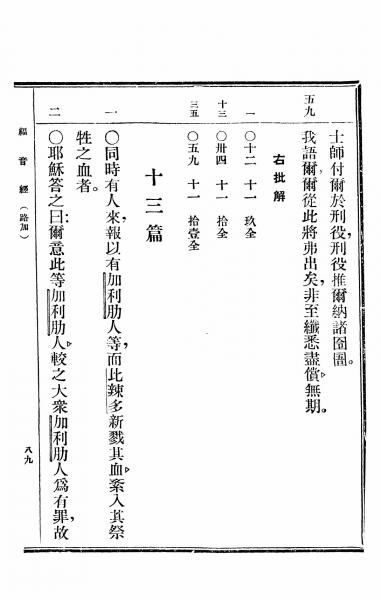 士師付爾於刑役,刑役推爾納諸囹圄。
五九 我語爾,爾從此將弗出矣,非至纖悉盡償,無期。
右批解
一 〇十二 十一 玖全
十三 〇卅四 十一 拾全
三五 〇五九 十一 拾壹全
十三篇
一 〇同時有人來,報以有加利肋人等,而比辣多新戮其血,紊入其祭
牲之血者。
二 〇耶穌答之曰:爾意此等加利肋人,較之大衆加利肋人爲有罪,故
福音經(路加) 八九